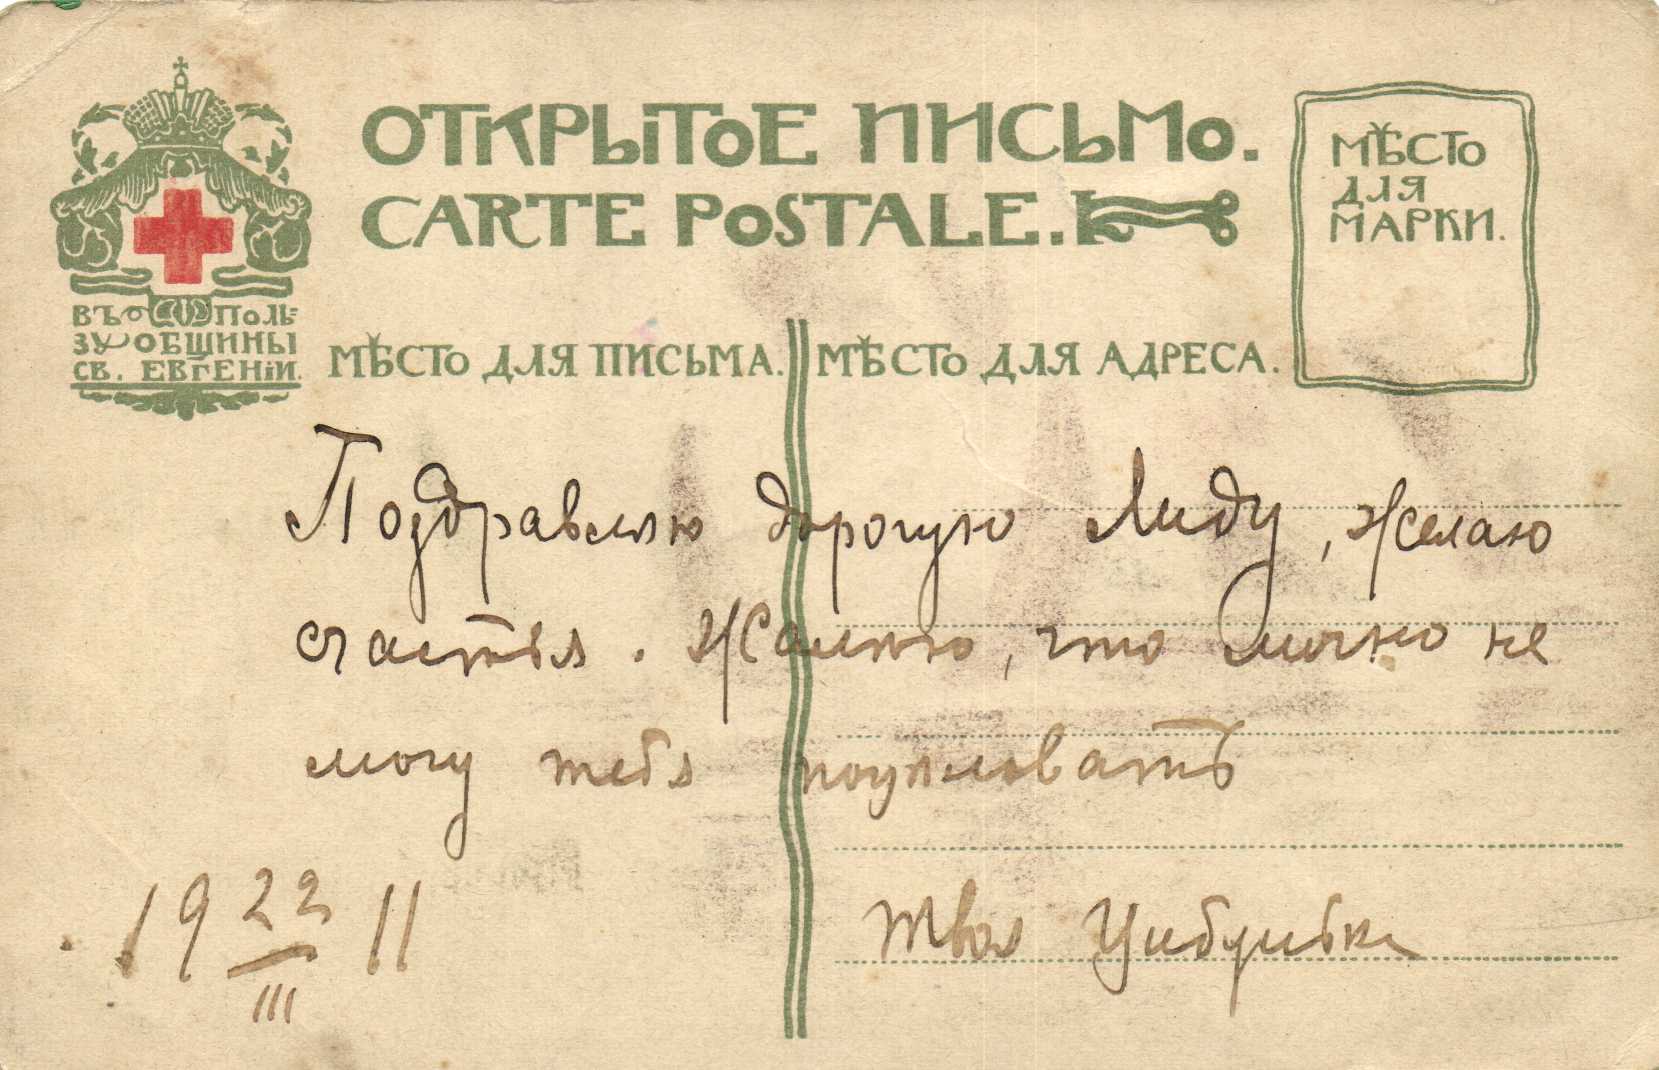 ОТКРЫТОЕ ПИСЬМО.
CARTE POSTALE.
МѢСТО
ДЛЯ
МАРКИ.
ВЪ ПОЛЬ-
ЗУ ОБЩИНЫ
СВ. ЕВГЕНІИ.
МѢСТО ДЛЯ ПИСЬМА.
МѢСТО ДЛЯ АДРЕСА.
Поздравляю дорогую Лиду, желаю
счастья. Жалею, что лично не
могу тебя поцѣловать
Твоя
19 22/III 11